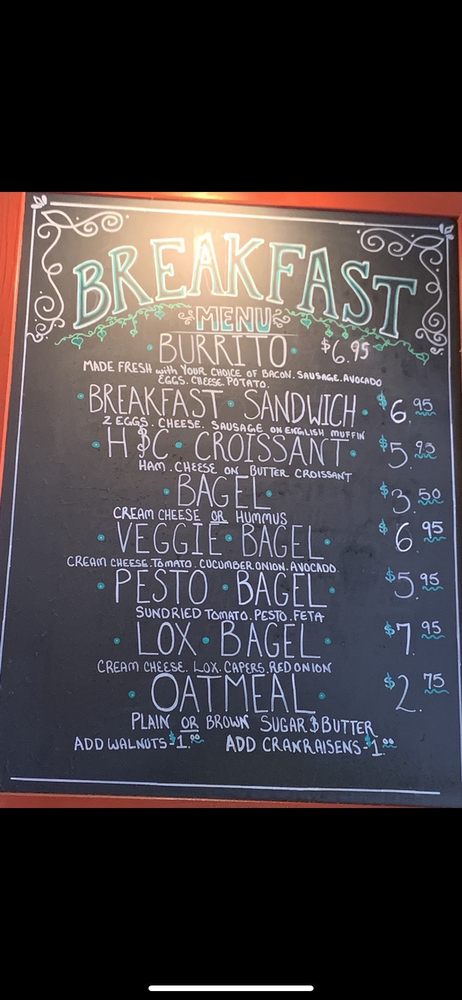 BREAKFAST
MENU
BURRITO $6.95
MADE FRESH with YOUR CHOICE OF BACON. SAUSAGE. AVOCADO
EGGS. CHEESE. POTATO.
BREAKFAST SANDWICH $6.95
2 EGGS. CHEESE. SAUSAGE ON ENGLISH MUFFIN
H&C CROISSANT $5.95
HAM. CHEESE ON BUTTER CROISSANT
BAGEL $3.50
CREAM CHEESE OR HUMMUS
VEGGIE BAGEL $6.95
CREAM CHEESE. TOMATO. CUCUMBER. ONION. AVOCADO.
PESTO BAGEL $5.95
SUNDRIED TOMATO. PESTO. FETA
LOX BAGEL $7.95
CREAM CHEESE. LOX. CAPERS. RED ONION
OATMEAL $2.75
PLAIN OR BROWN SUGAR & BUTTER
ADD WALNUTS-$1.00 ADD CRANRAISENS-$1.00